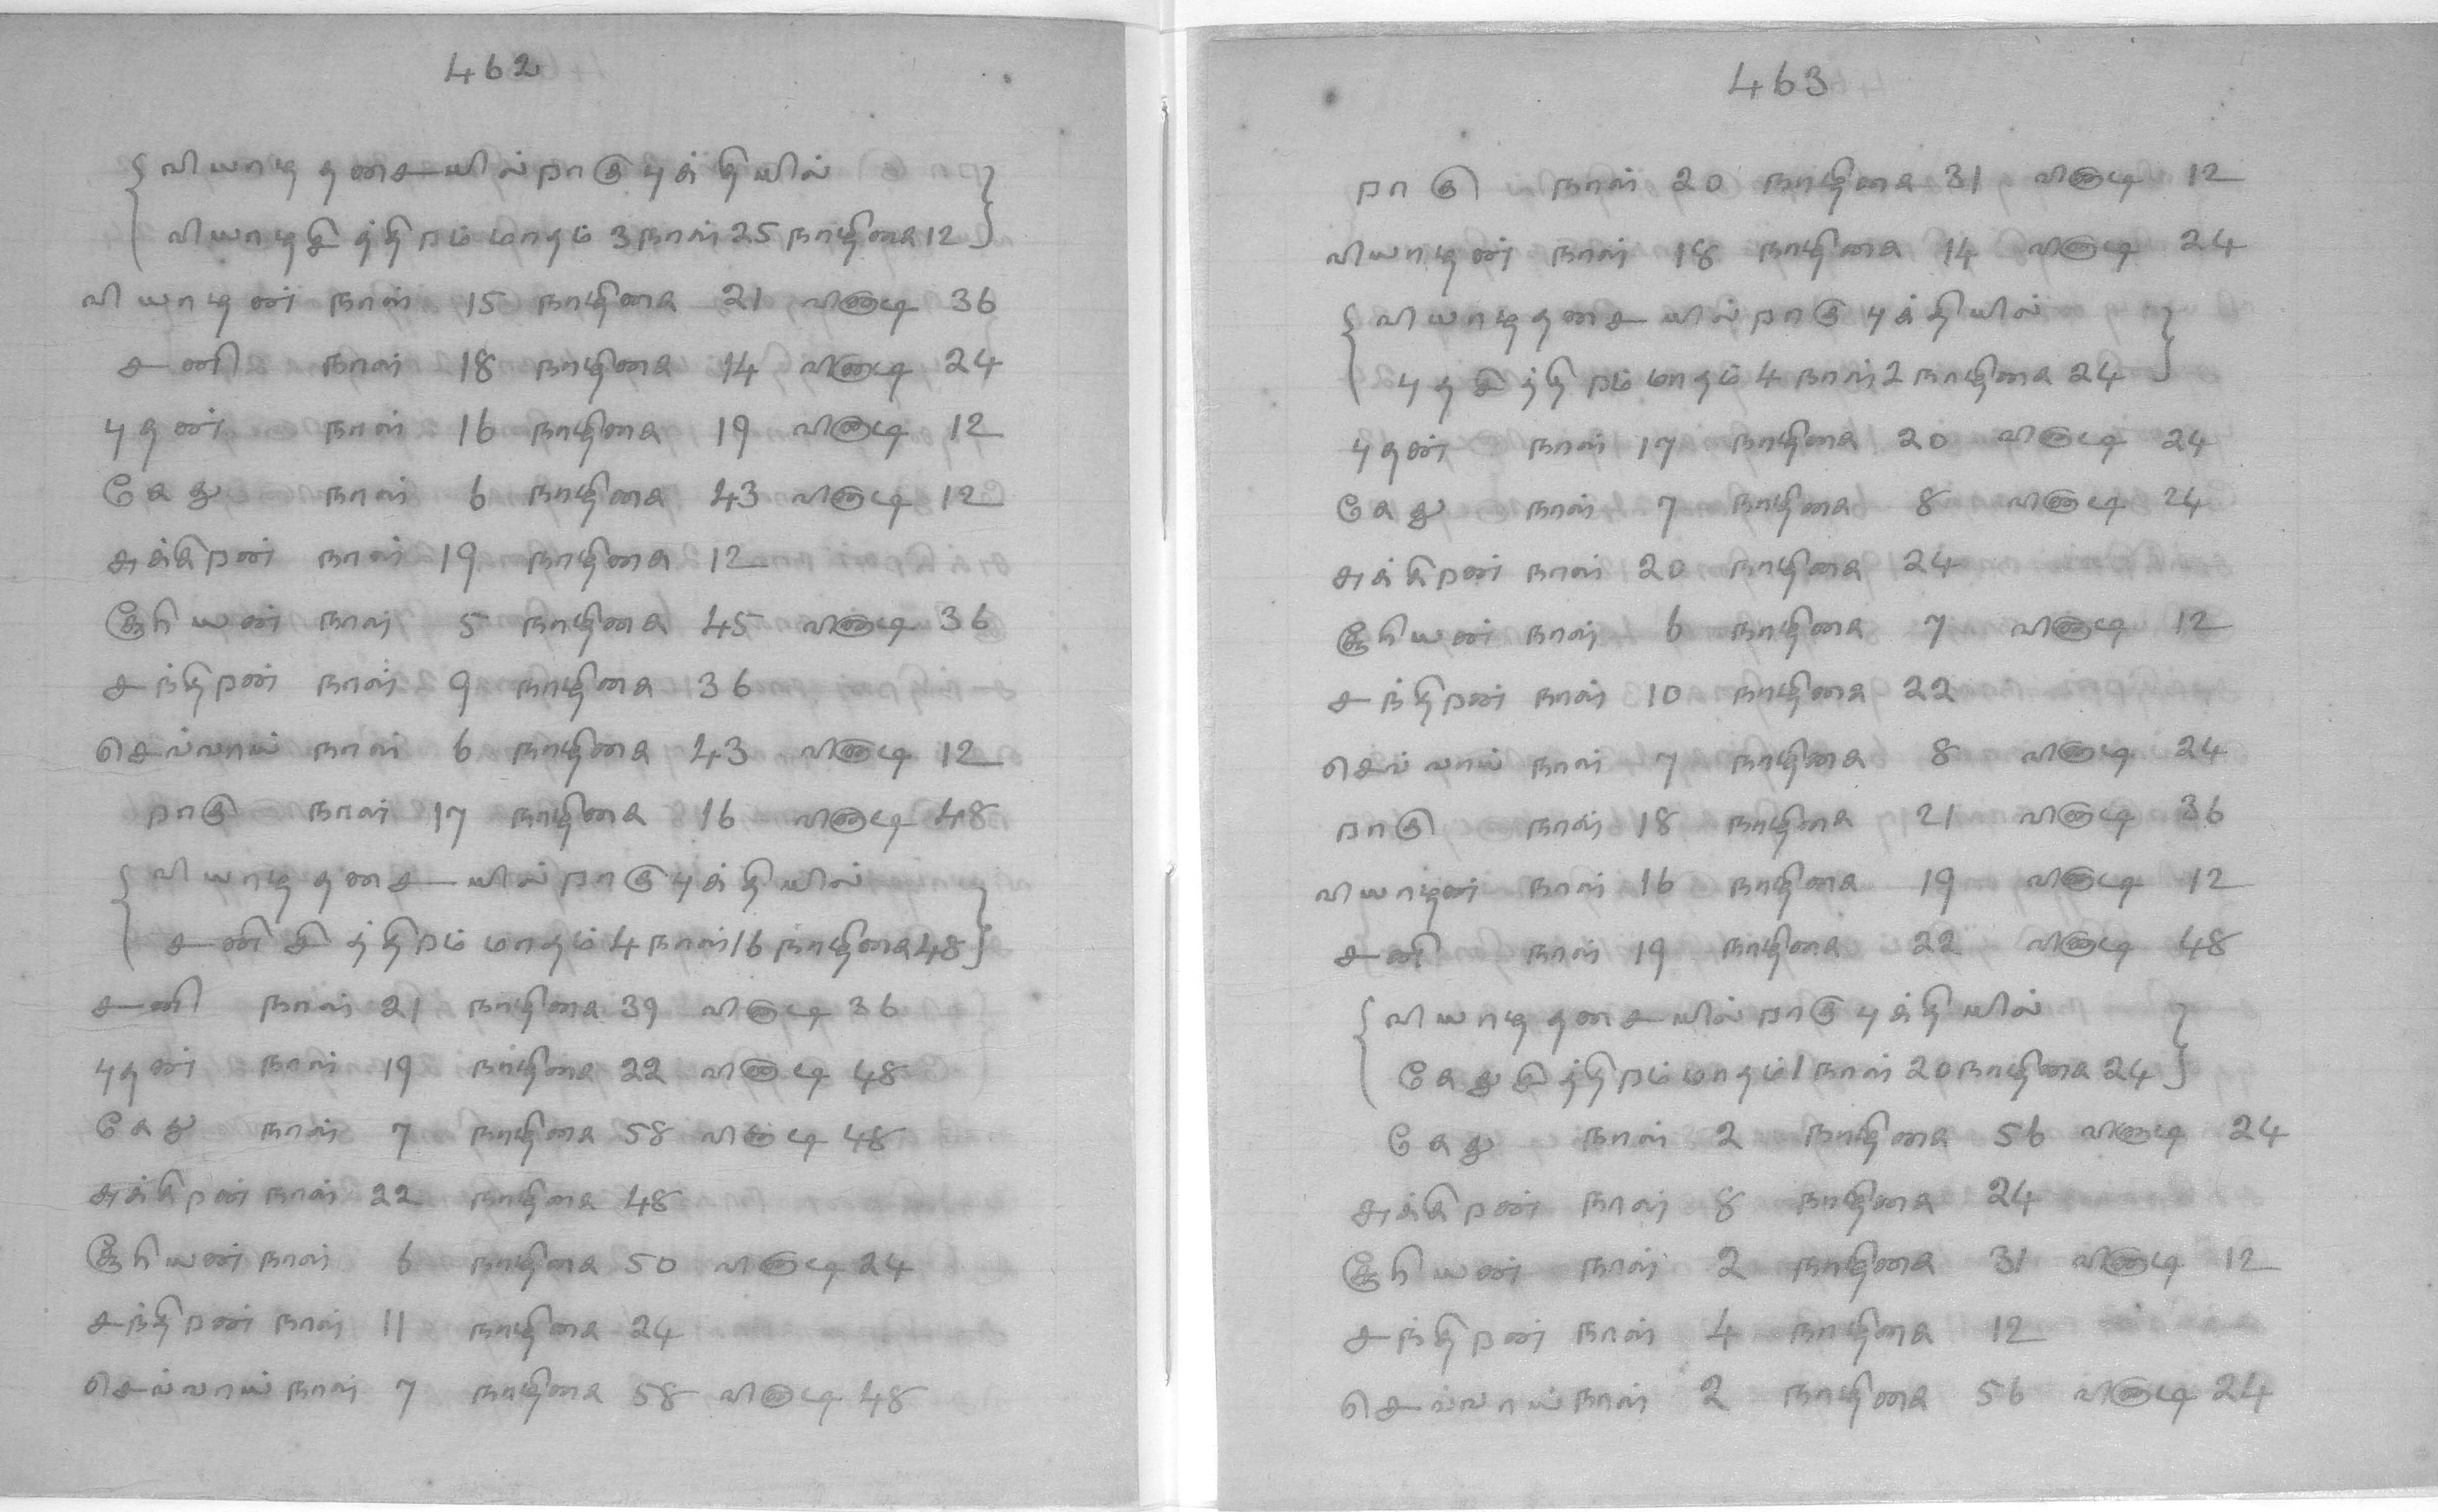 462
{வியாழ தசையில் ராகு புக்தியில்
வியாழ சித்திரம் மாதம் 3 நாள் 25 நாழிகை 12}
வியாழன் நாள் 15 நாழிகை 21 விநாடி 36
சனி நாள் 18 நாழிகை 14 விநாடி 24
புதன் நாள் 16 நாழிகை 19 விநாடி 12
கேது நாள் 6 நாழிகை 43 விநாடி 12
சுக்கிரன் நாள் 19 நாழிகை 12
சூரியன் நாள் 5 நாழிகை 45 விநாடி 36
சந்திரன் நாள் 9 நாழிகை 36
செவ்வாய் நாள் 6 நாழிகை 43 விநாடி 12
ராகு நாள் 17 நாழிகை 16 விநாடி 48
{வியாழ தசையில் ராகு புக்தியில்
சனி சித்திரம் மாதம் 4 நாள் 16 நாழிகை 48}
சனி நாள் 21 நாழிகை 39 விநாடி 36
புதன் நாள் 19 நாழிகை 22 விநாடி 48
கேது நாள் 7 நாழிகை 58 விநாடி 48
சுக்கிரன் நாள் 22 நாழிகை 48
சூரியன் நாள் 6 நாழிகை 50 விநாடி 24
சந்திரன் நாள் 11 நாழிகை 24
செவ்வாய் நாள் 7 நாழிகை 58 விநாடி 48
463
ராகு நாள் 20 நாழிகை 31 விநாடி 12
வியாழன் நாள் 18 நாழிகை 14 விநாடி 24
{வியாழ தசையில் ராகு புக்தியில்
புத சித்திரம் மாதம் 4 நாள் 2 நாழிகை 24}
புதன் நாள் 17 நாழிகை 20 விநாடி 24
கேது நாள் 7 நாழிகை 8 விநாடி 24
சுக்கிரன் நாள் 20 நாழிகை 24
சூரியன் நாள் 6 நாழிகை 7 விநாடி 12
சந்திரன் நாள் 10 நாழிகை 22
செவ்வாய் நாள் 7 நாழிகை 8 விநாடி 24
ராகு நாள் 18 நாழிகை 21 விநாடி 36
வியாழன் நாள் 16 நாழிகை 19 விநாடி 12
சனி நாள் 19 நாழிகை 22 விநாடி 48
{வியாழ தசையில் ராகு புக்தியில்
கேது சித்திரம் மாதம் 1 நாள் 20 நாழிகை 24}
கேது நாள் 2 நாழிகை 56 விநாடி 24
சுக்கிரன் நாள் 8 நாழிகை 24
சூரியன் நாள் 2 நாழிகை 31 விநாடி 12
சந்திரன் நாள் 4 நாழிகை 12
செவ்வாய் நாள் 2 நாழிகை 56 விநாடி 24